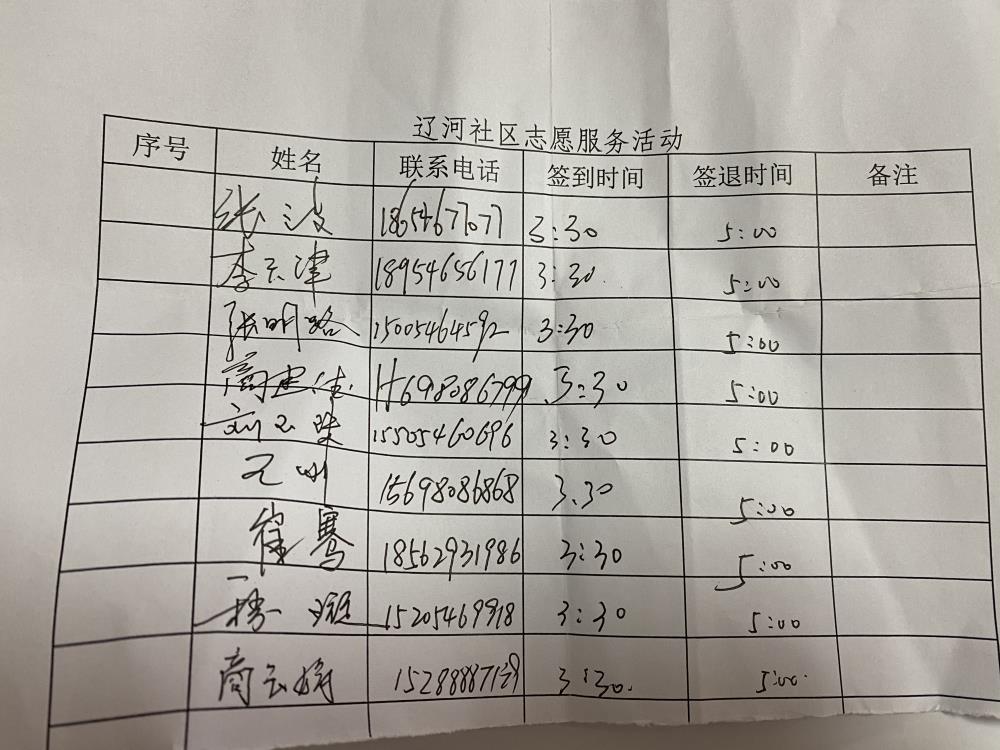 辽河社区志愿服务活动
序号 姓名 联系电话 签到时间 签退时间 备注
张波 18654677077 3:30 5:00
李云津 18954656177 3:30 5:00
张明路 15005464592 3:30 5:00
商建佳 15698086799 3:30 5:00
刘玉 15505460696 3:30 5:00
王 15698086868 3.30 5:00
崔骞 18562931986 3:30 5:00
15205469918 3:30 5:00
商云 3:30. 5:00.